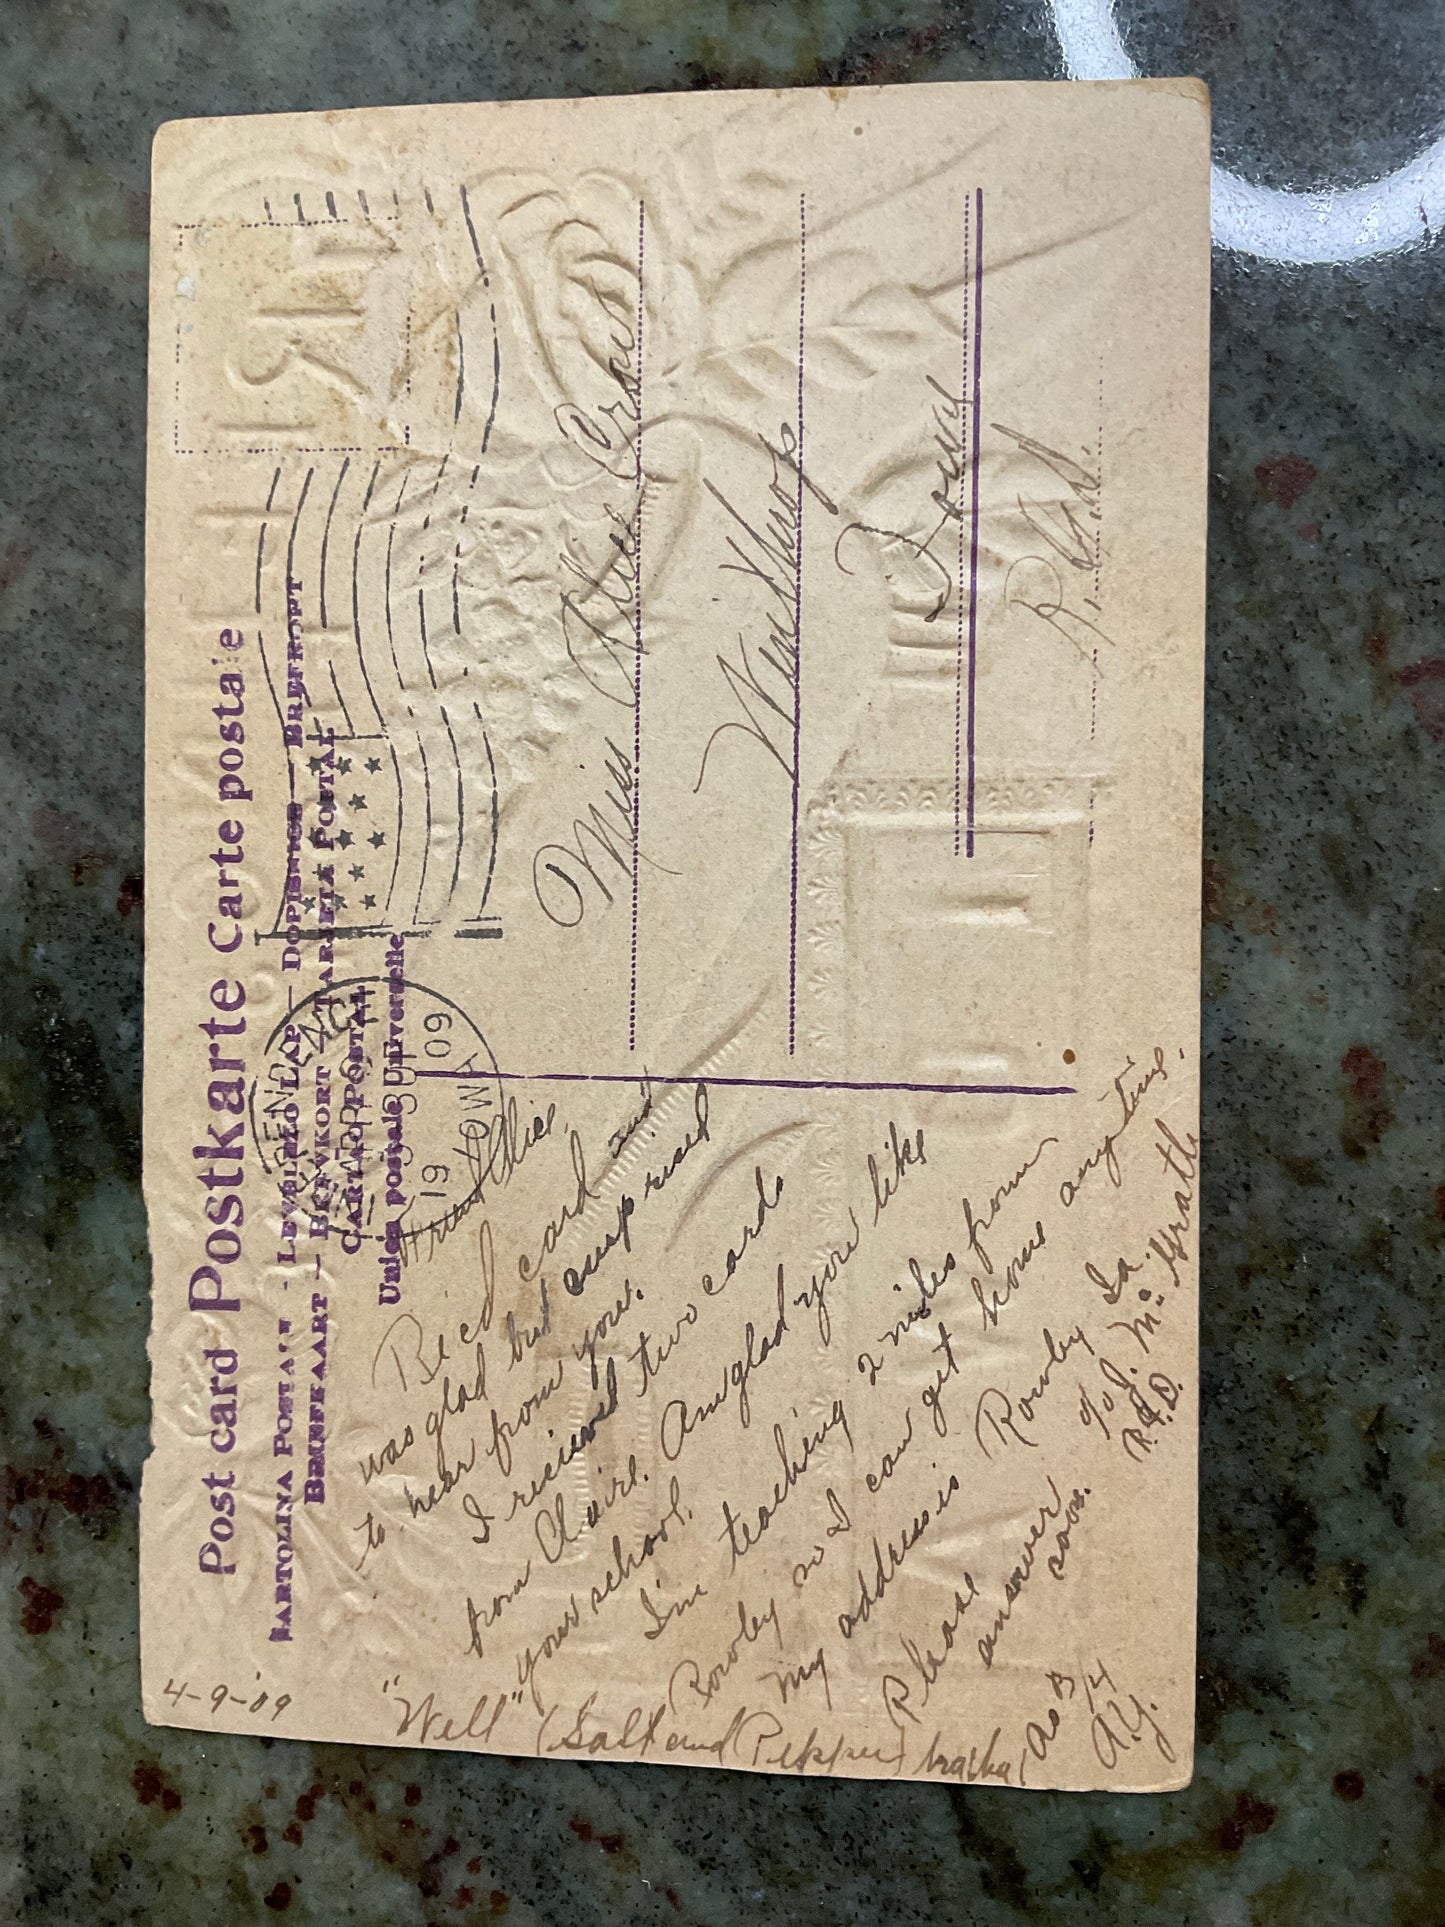 Post card Postkarte Carte postale
CARTOLINA POSTALE - LEVELEZÖ LAP — DOPISNICE — BREFKORT
BRIEFKAART — BREVKORT TARJETA POSTAL
CARTAO POSTAL
Union postale Universelle
INDEPENDENCE
APR 9
9 30 AM
19 09
IOWA
4-9-'09
Friend Alice,
Rec'd card
was glad but surprised
to hear from you.
I recieved two cards
from Claire. Am glad you like
your school.
I'm teaching 2 miles from
Rowley so I can get home anytime.
My address is Rowley Ia.
℅ J. McGrath
R.F.D.
Please
answer
soon.
"Well" (Salt and Pepper) ha! ha!
A.Y.
Miss Alice Crow
Winthrop
Iowa
R.F.D.